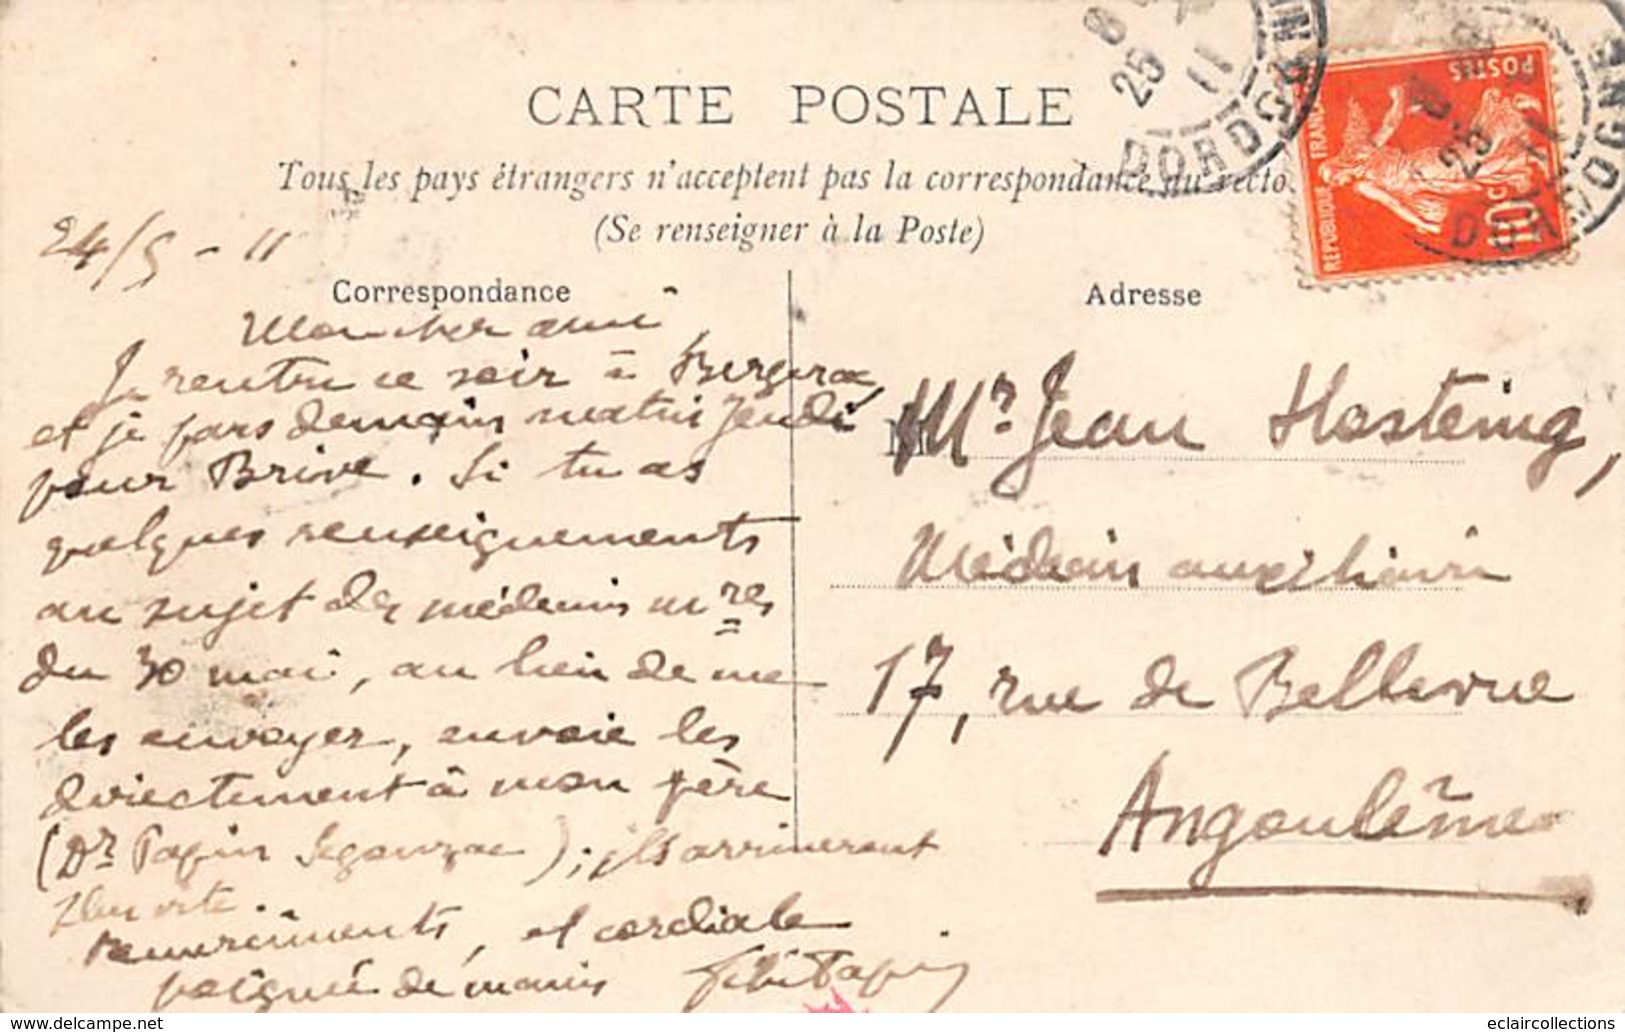 CARTE POSTALE
Tous les pays étrangers n'acceptent pas la correspondance au recto
(Se renseigner à la Poste)
24/5 - 11
Correspondance
Mon cher ami,
Je rentre ce soir à Bergerac,
et je pars demain matin Jeudi
pour Brive. Si tu as
quelques renseignements
au sujet des médecins mres
du 30 mai, au lieu de me
les envoyer, envoie les
directement à mon père
(Dr Papin Segonzac); ils arriveront
plus vite.
Remerciments, et cordiale
poignée de mains
Papin
Adresse
M
Mr Jean Hosteing,
Médecin auxiliaire
17, rue de Bellevue
Angoulême
8
25
11
DORDOGNE
POSTES
REPUBLIQUE FRANÇ
10c
8
25
11
DORDOGNE
www.delcampe.net
eclaircollections